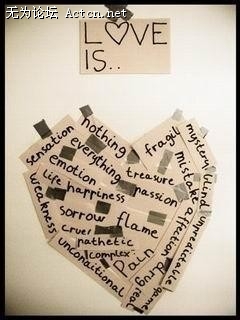 无为论坛 Actcn.net
LOVE
IS..
nothing
sensation
everything
fragil
mystery
emotion
treasure
mistake
blind
life
happiness
passion
weakness
sorrow
flame
affection
unpredictable
cruel
pathetic
pain
complex
drug
unconditional
real
game